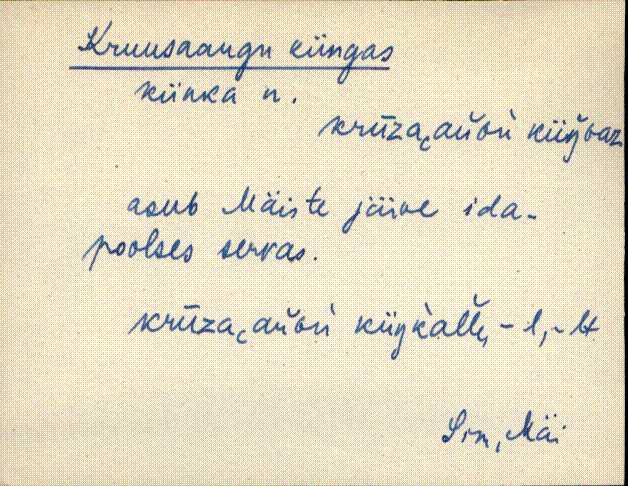 Kruusaaugu küngas
künka n.
krūza,aŭɢù küŋ̆ɢaz
asub Mäiste järve ida-
poolses servas.
krūza,aŭɢù küŋ̀kalle, -l, -lt
Mäi